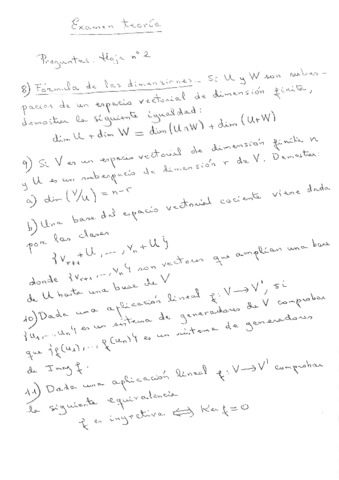 Examen teoría
Preguntas. Hoja nº 2
8) Fórmula de las dimensiones.- Si U y W son subes-
pacios de un espacio vectorial de dimensión finita,
demostrar la siguiente igualdad:
dim U + dim W = dim (U∩W) + dim (U+W)
9) Si V es un espacio vectorial de dimensión finita n
y U es un subespacio de dimensión r de V. Demostrar:
a) dim (V/U) = n-r
b) Una base del espacio vectorial cociente viene dada
por las clases
{v_{r+1} + U, ..., v_n + U}
donde {v_{r+1}, ..., v_n} son vectores que amplían una base
de U hasta una base de V
10) Dada una aplicación lineal f: V → V', si
{u_1, ..., u_n} es un sistema de generadores de V comprobar
que {f(u_1), ..., f(u_n)} es un sistema de generadores
de Imag f.
11) Dada una aplicación lineal f: V → V' comprobar
la siguiente equivalencia
f es inyectiva ⟺ Ker f = 0